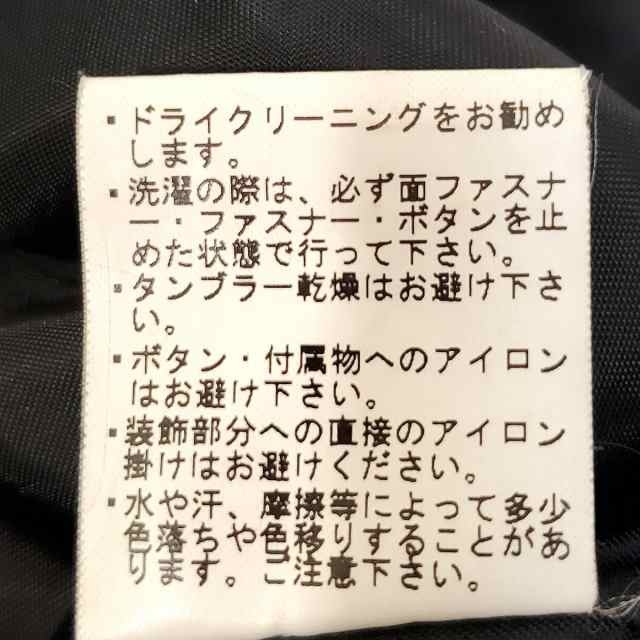 ▪ドライクリーニングをお勧め
します。
▪洗濯の際は、必ず面ファスナ
ー・ファスナー・ボタンを止
めた状態で行って下さい。
▪タンブラー乾燥はお避け下さ
い。
▪ボタン・付属物へのアイロン
はお避け下さい。
▪装飾部分への直接のアイロン
掛けはお避けください。
▪水や汗、摩擦等によって多少
色落ちや色移りすることがあ
ります。ご注意下さい。